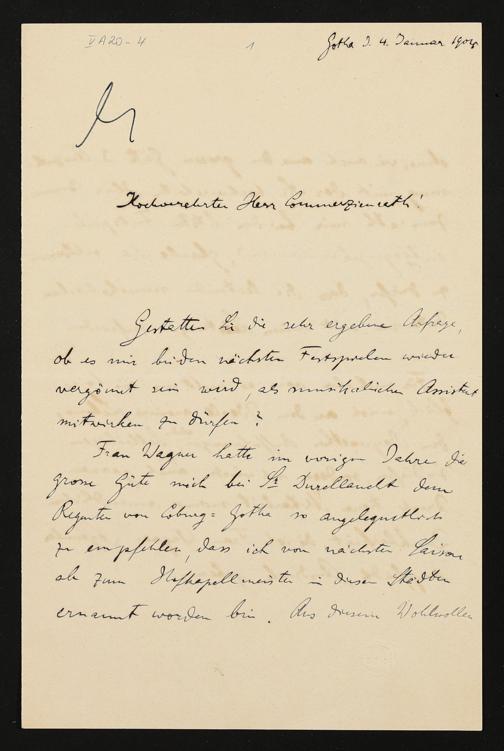 VA20-4
1
Gotha d. 4. Januar 1904
Hochverehrter Herr Commerzienrath!
Gestatten Sie die sehr ergebene Anfrage,
ob es mir bei den nächsten Festspielen wieder
vergönnt sein wird, als musikalischer Assistent
mitwirken zu dürfen?
Frau Wagner hatte im vorigen Jahre die
grosse Güte mich bei Sr. Durchlaucht dem
Regenten von Coburg-Gotha so angelegentlich
zu empfehlen, dass ich von nächster Saison
ab zum Hofkapellmeister in diesen Städten
ernannt worden bin. Aus diesem Wohlwollen